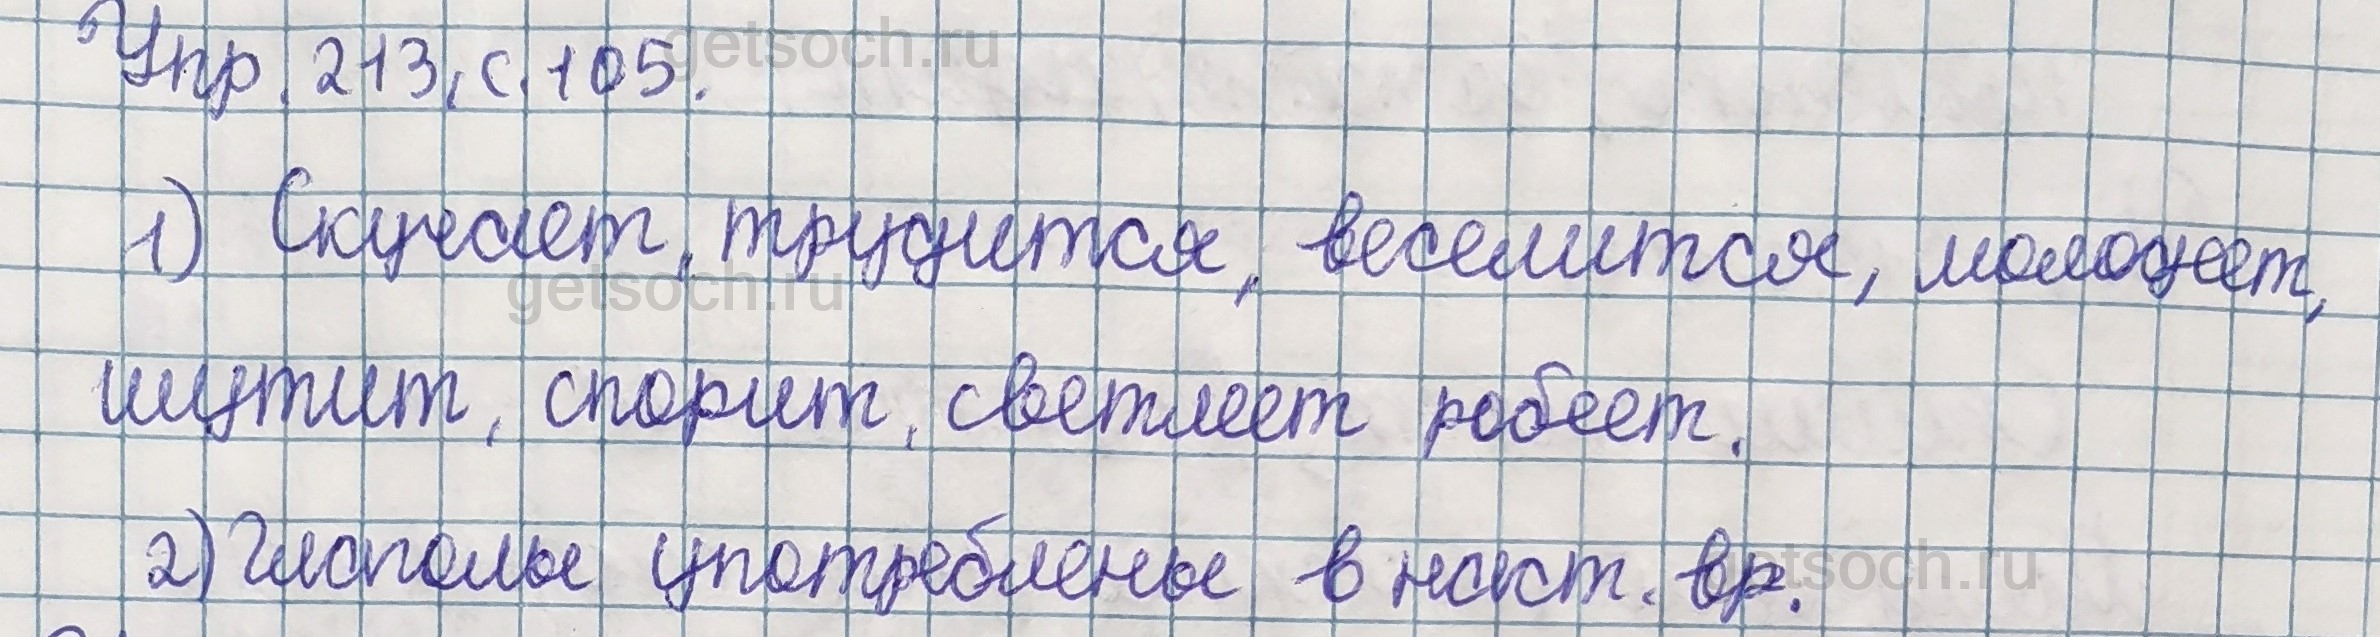 Упр. 213, с. 105.
getsoch.ru
1) Скучает, трудится, веселится, молодеет,
getsoch.ru
шутит, спорит, светлеет робеет.
2) Глаголы употреблены в наст. вр.
getsoch.ru